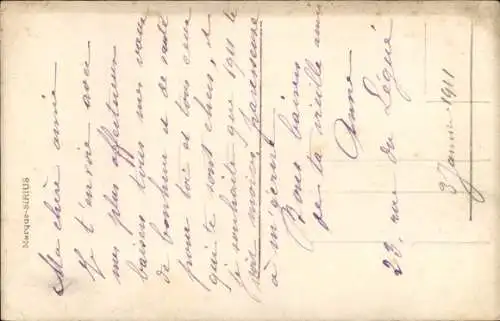 Ma chère amie
Je t'envoie avec
mes plus affectueux
baisers tous mes vœux
de bonheur et de santé
pour toi et tous ceux
qui te sont chers, et
je souhaite que 1911 te
voie moins paresseuse
à m'écrire.
Bons baisers
de ta vieille amie
Anne
23, rue du Légué
3 Janvier 1911
Marque-SIRIUS